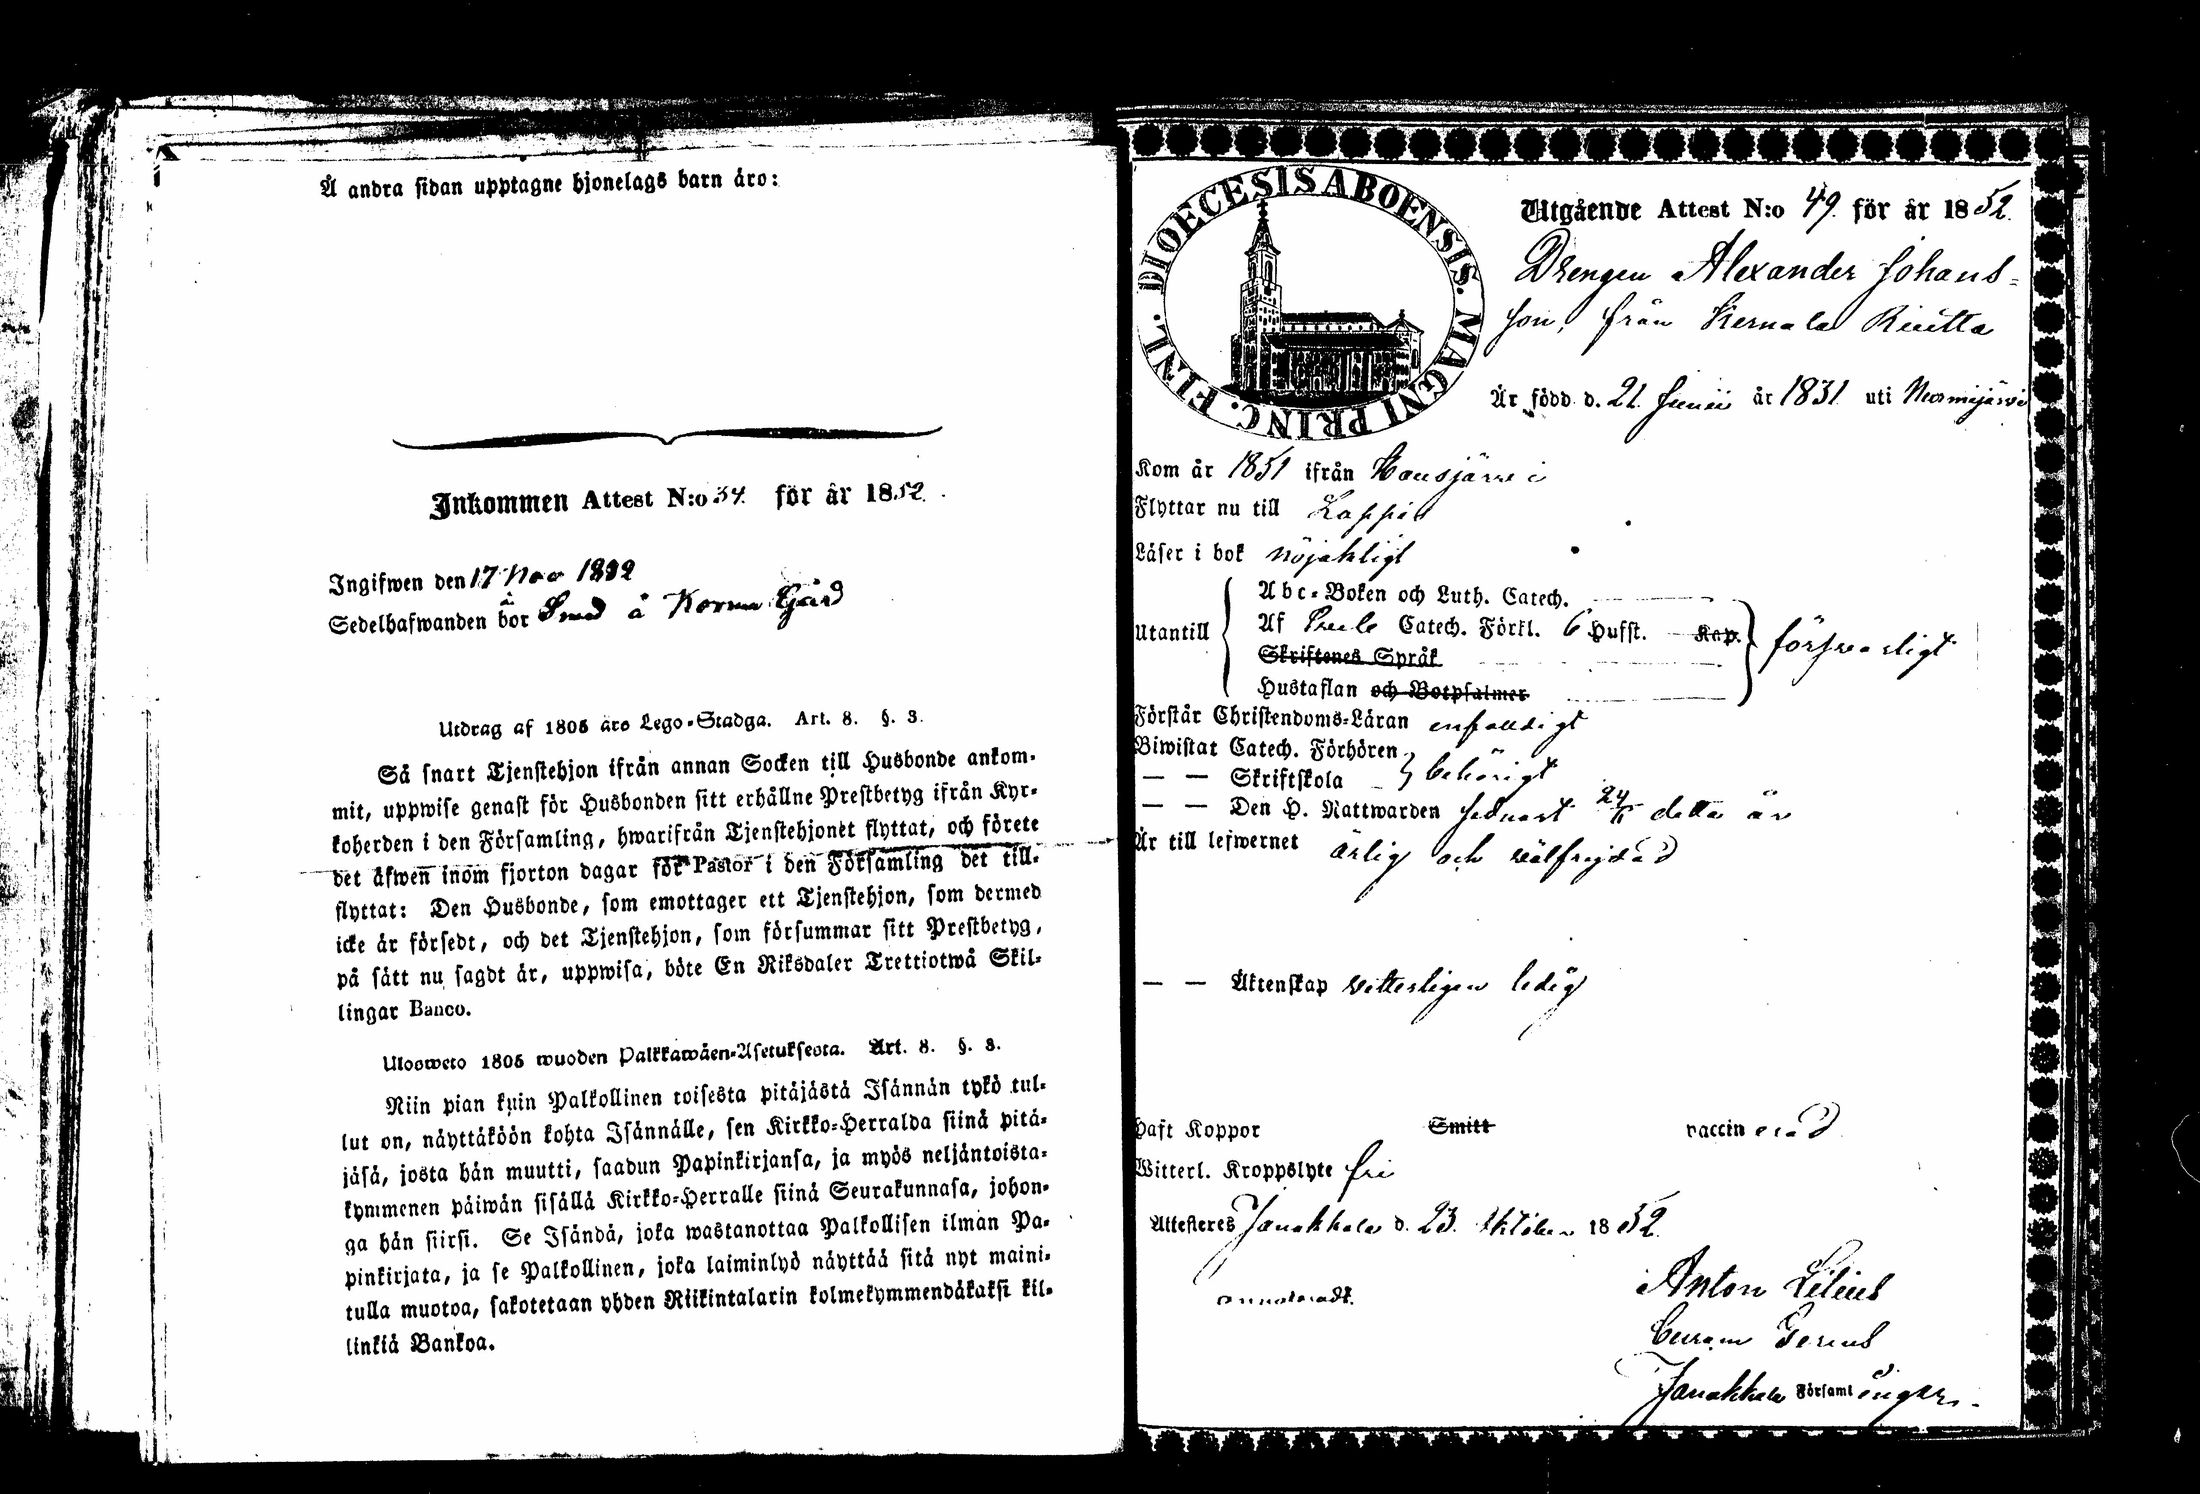 Å andra sidan upptagne hjonelags barn äro:
Inkommen Attest N:o 34. för år 1852.
Ingifwen den 17 Nov 1852
Sedelhafwanden bor Smed å Korma Gård
Utdrag af 1805 års Lego-Stadga. Art. 8. §. 3.
Så snart Tjenstehjon ifrån annan Socken till Husbonde ankom-
mit, uppwise genast för Husbonden sitt erhållne Prestbetyg ifrån Kyr-
koherden i den Församling, hwarifrån Tjenstehjonet flyttat, och förete
det äfwen inom fjorton dagar för Pastor i den Församling det till-
flyttat: Den Husbonde, som emottager ett Tjenstehjon, som dermed
icke är försedt, och det Tjenstehjon, som försummar sitt Prestbetyg,
på sätt nu sagdt är, uppwisa, böte En Riksdaler Trettiotwå Skil-
lingar Banco.
Ulosweto 1805 wuoden Palkkawäen-Asetuksesta. Art. 8. §. 3.
Niin pian kuin Palkollinen toisesta pitäjästä Isännän tykö tul-
lut on, näyttäköön kohta Isännälle, sen Kirkko-Herralda siinä pitä-
jäsä, josta hän muutti, saadun Papinkirjansa, ja myös neljäntoista-
kymmenen päiwän sisällä Kirkko-Herralle siinä Seurakunnasa, johon-
ga hän siirsi. Se Isändä, joka wastanottaa Palkollisen ilman Pa-
pinkirjata, ja se Palkollinen, joka laiminlyö näyttää sitä nyt maini-
tulla muotoa, sakotetaan yhden Riikintalarin kolmekymmendäkaksi kil-
linkiä Bankoa.
FINL. DIOECESIS ABOENSIS. MAGNI PRINC.
Utgående Attest N:o 49. för år 1852.
Drengen Alexander Johans-
son, från Kernala Riutta
Är född d. 21. Junii år 1831. uti Nurmijärvi
Kom år 1851 ifrån Hausjärvi
Flyttar nu till Loppis
Läser i bok nöjaktligt
Abc-Boken och Luth. Catech.
Utantill Af Catech. Förkl. 6 Hufst. Kap. försvarligt
Skriftenes Språk
Hustaflan och Botpsalmer
Förstår Christendoms-Läran enfaldigt
Biwistat Catech. Förhören
— — Skriftskola behörigt
— — Den H. Nattwarden sednast 24/ detta år
Är till lefwernet ärlig och välfrejdad
— — Äktenskap vetterligen ledig
Haft Koppor Smitt vaccinerad
Witterl. Kroppslyte fri
Attesteres Janakkala d. 23. Oktober 1852.
Anton Lilius
Janakkala Församlingar.